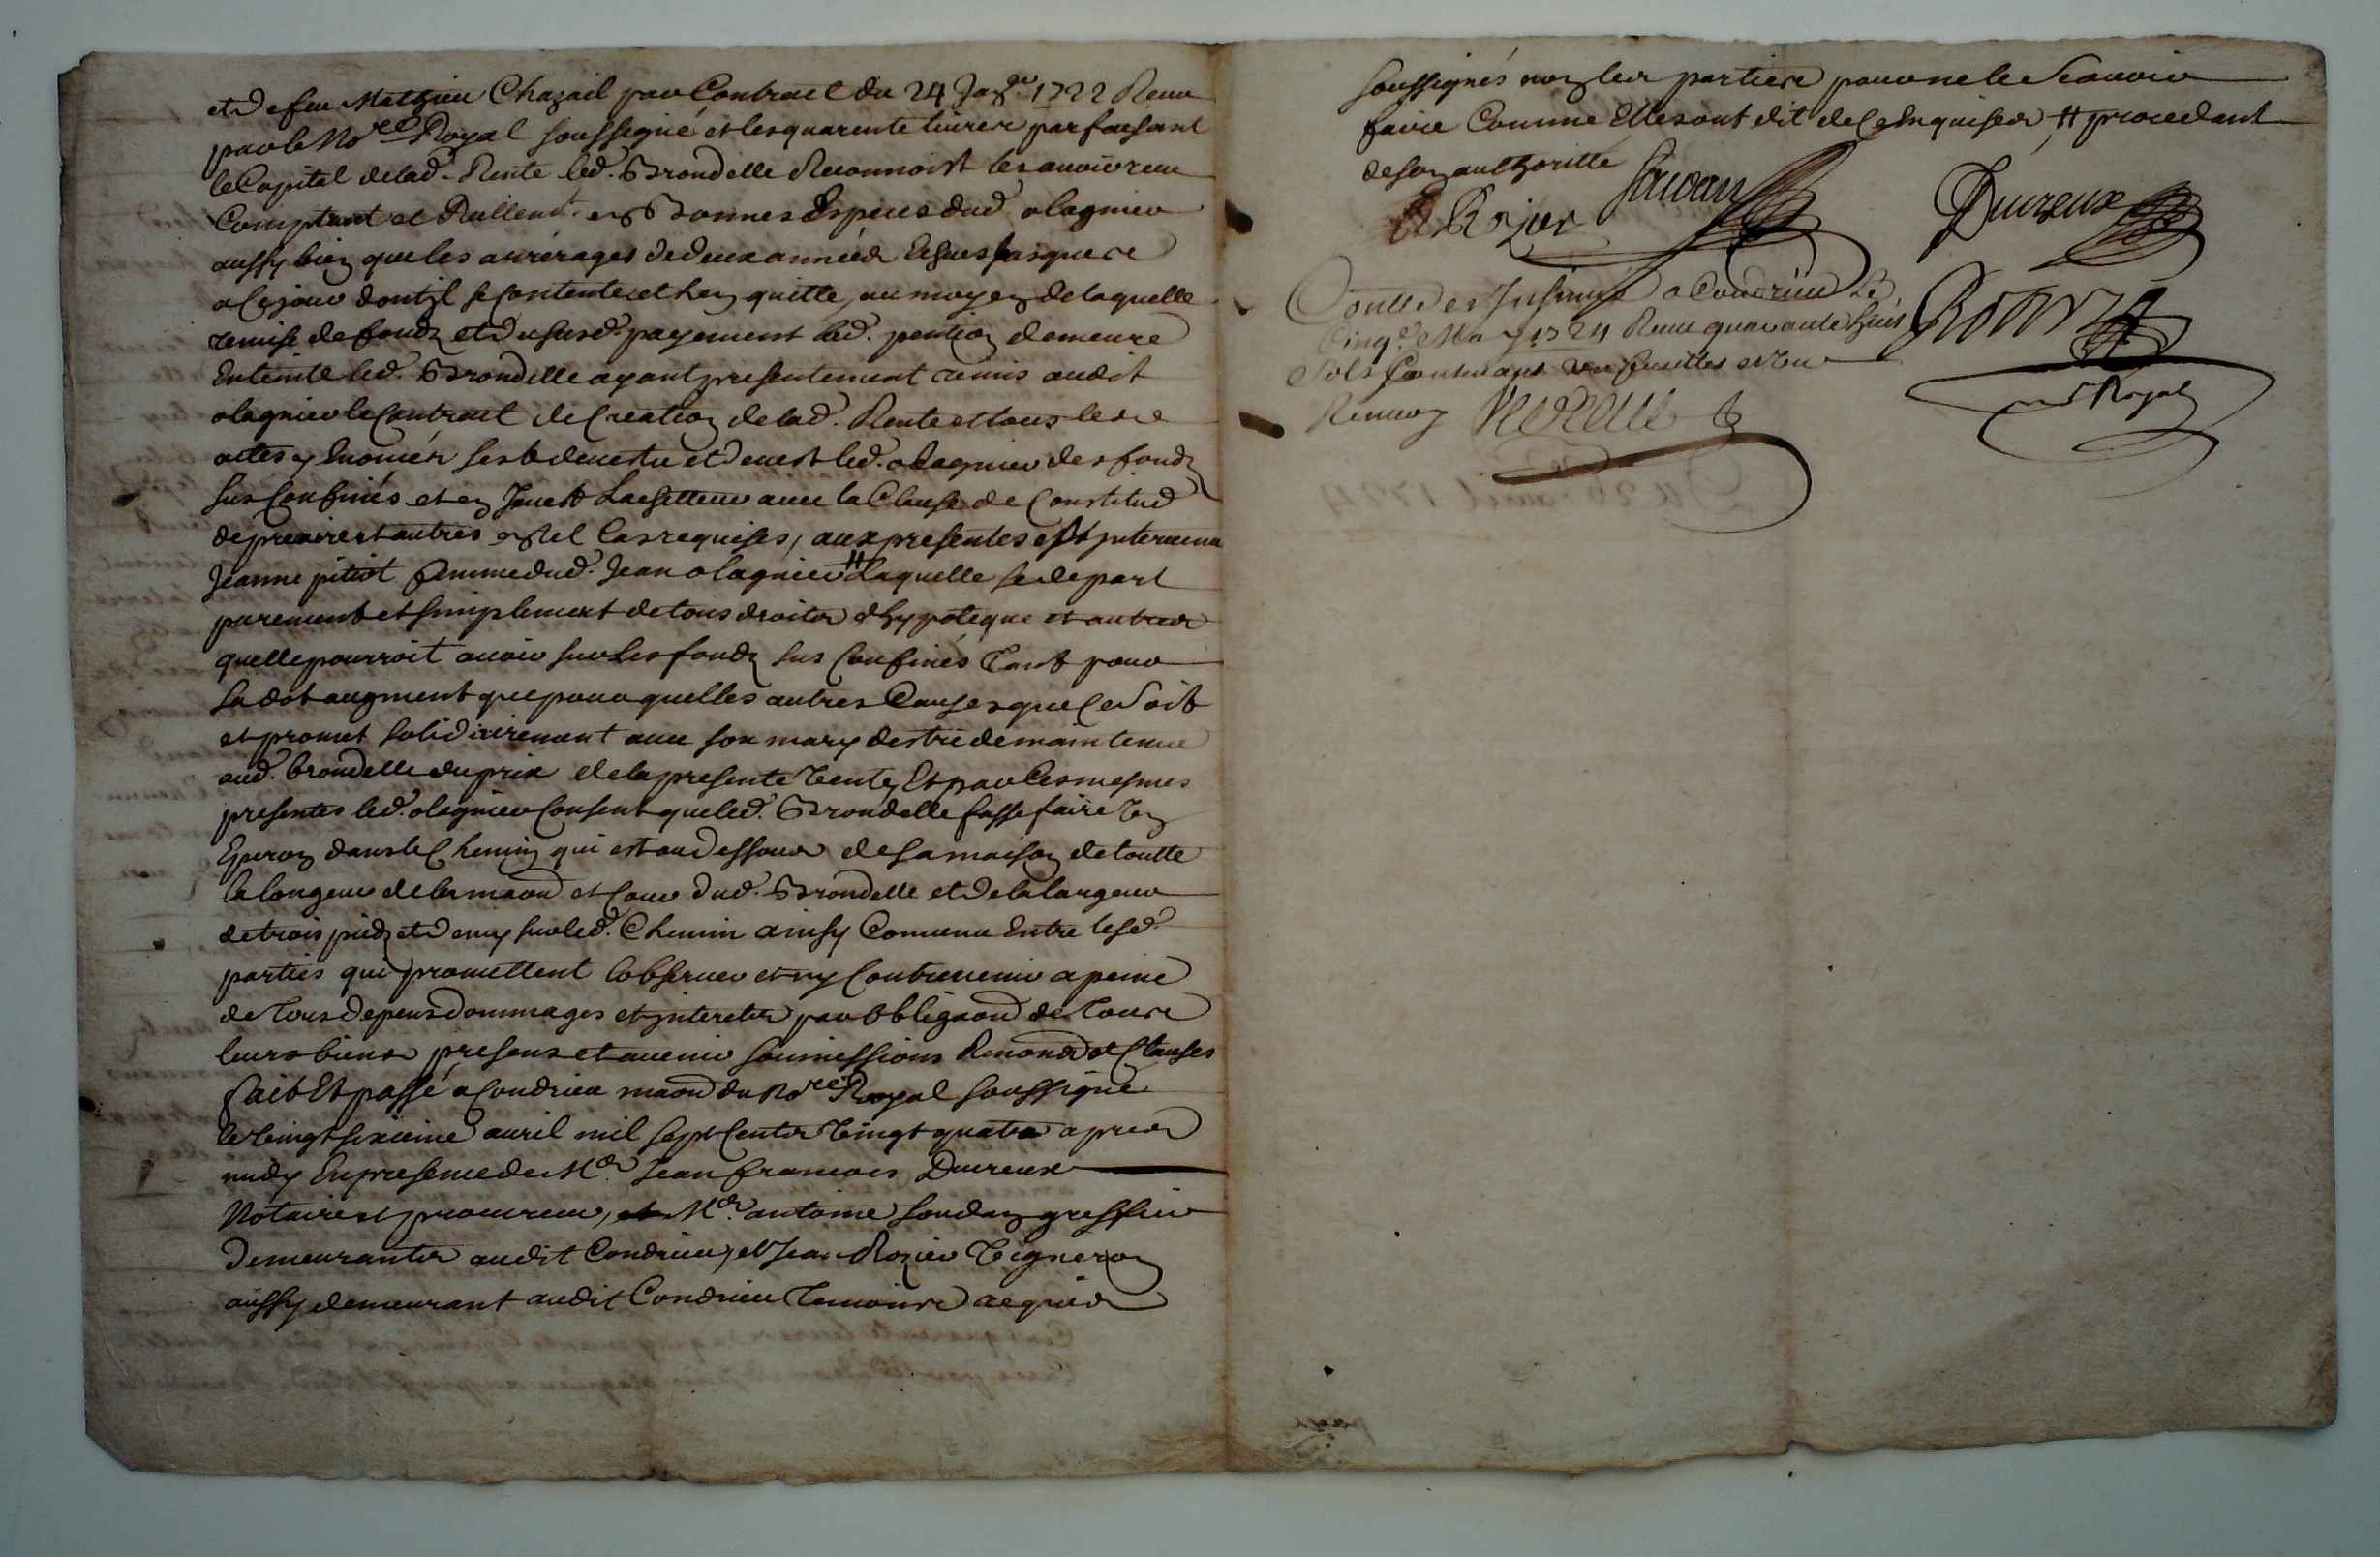 et de feu Mathieu Chazail par Contract du 24 Janr. 1722 Receu
par le Nore Royal soussigné et les quarente livres parfaisant
le Capital de lad. Rente led. Brondelle Reconnoist les avoir receu
Comptant et Reellemt. en Bonnes Especes dud. olagnier
aussy bien que les arrérages de deux années Echues jusques
a ce jour dont il se contente et len quitte, au moyen de laquelle
remise de fonds et du susd. payement led. pention demeure
Enteinte led. Brondelle ayant presentement remis audit
olagnier le Contract de Creation de lad. Rente et tous les
actes y Enoncés sest devestu et devest led. olagnier des fonds
sus Confinés et en Invest Lachetteur avec la Clause de Constitud
de precaire et autres en tel Cas requises, aux presentes est intervenue
Jeanne pitiot femme dud. Jean olagnier # Laquelle se depart
purement et simplement de tous droits dhypoteque et autres
quelle pourroit avoir sur les fonds sus Confinés Tant pour
sa dot augment que pour quelles autres Causes que ce soit
et promet solidairement avec son mary destre de maintenue
aud. brondelle du prix de la presente Vente, Et par Ces mesmes
presentes led. olagnier Consent que led. Brondelle fasse faire Un
Eperon dans le Chemin qui est au dessous de sa maison de toutte
la longeur de la maon et Cour dud. Brondelle et de la largeur
de trois pieds et demy sur led. Chemin ainsy Convenu Entre lesd.
parties qui promettent lobserver et ny Contrevenir a peine
de Tous depens dommages et interets par obligaon de Tous
leurs biens presens et avenir soumissions Renonons et Clauses
fait Et passé a Condrieu maon du Nore Royal soussigné
le Vingt sixieme avril mil sept Cents Vingt quatre apres
midy En presence de Me. Jean francois Ducreux
Notaire et procureur, Me. antoine soudan greffier
Demeurants audit Condrieu, et Jean Rozier Vigneron
aussy demeurant audit Condrieu Temoins requis
soussignés non les parties pour ne le scavoir
faire Comme Elles ont dit de Ce Enquises, # procedant
de son authoritté
Rojer Soudan Ducreux
Contlé et Insinué a Condrieu Le
Cinqe. May 1724 Receu quarante huit
sols Contenant une feuilles et un
Renvoy
nore Royal